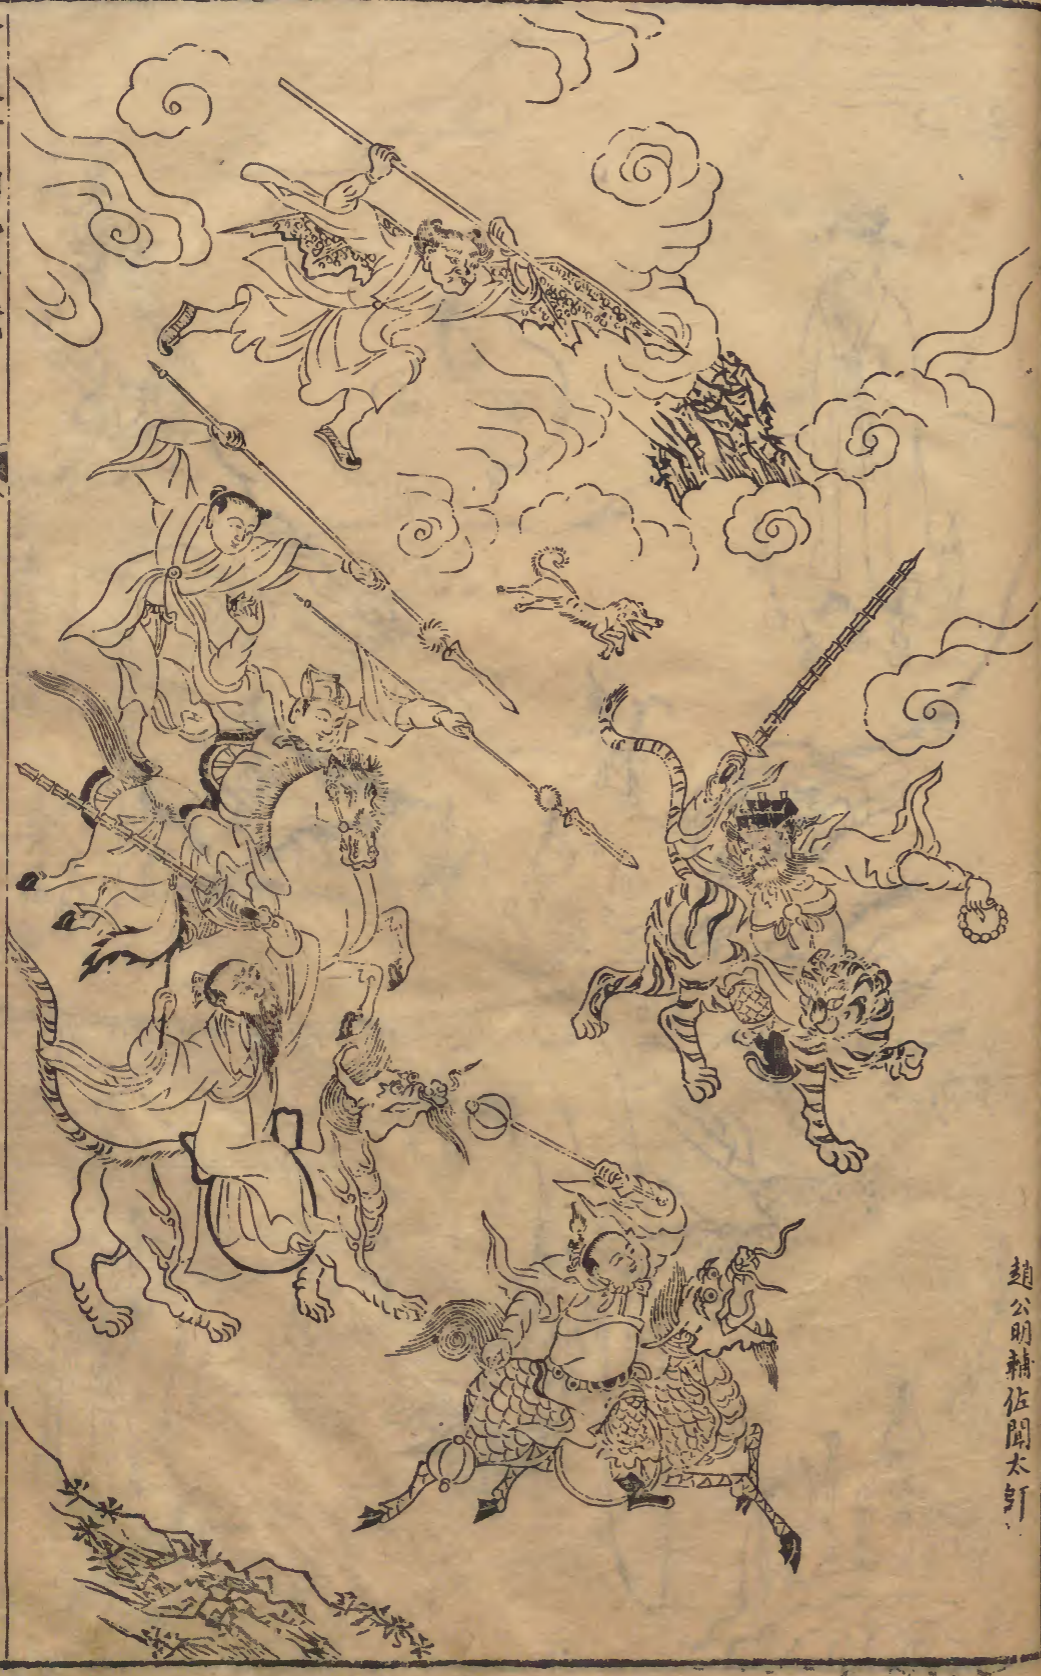 趙公明輔佐聞太師